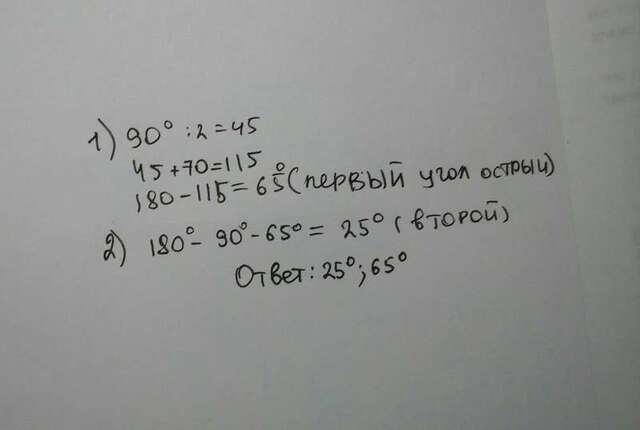 1) 90° : 2 = 45
45 + 70 = 115
180 - 115 = 65° (первый угол острый)
2) 180° - 90° - 65° = 25° (второй)
Ответ: 25°; 65°